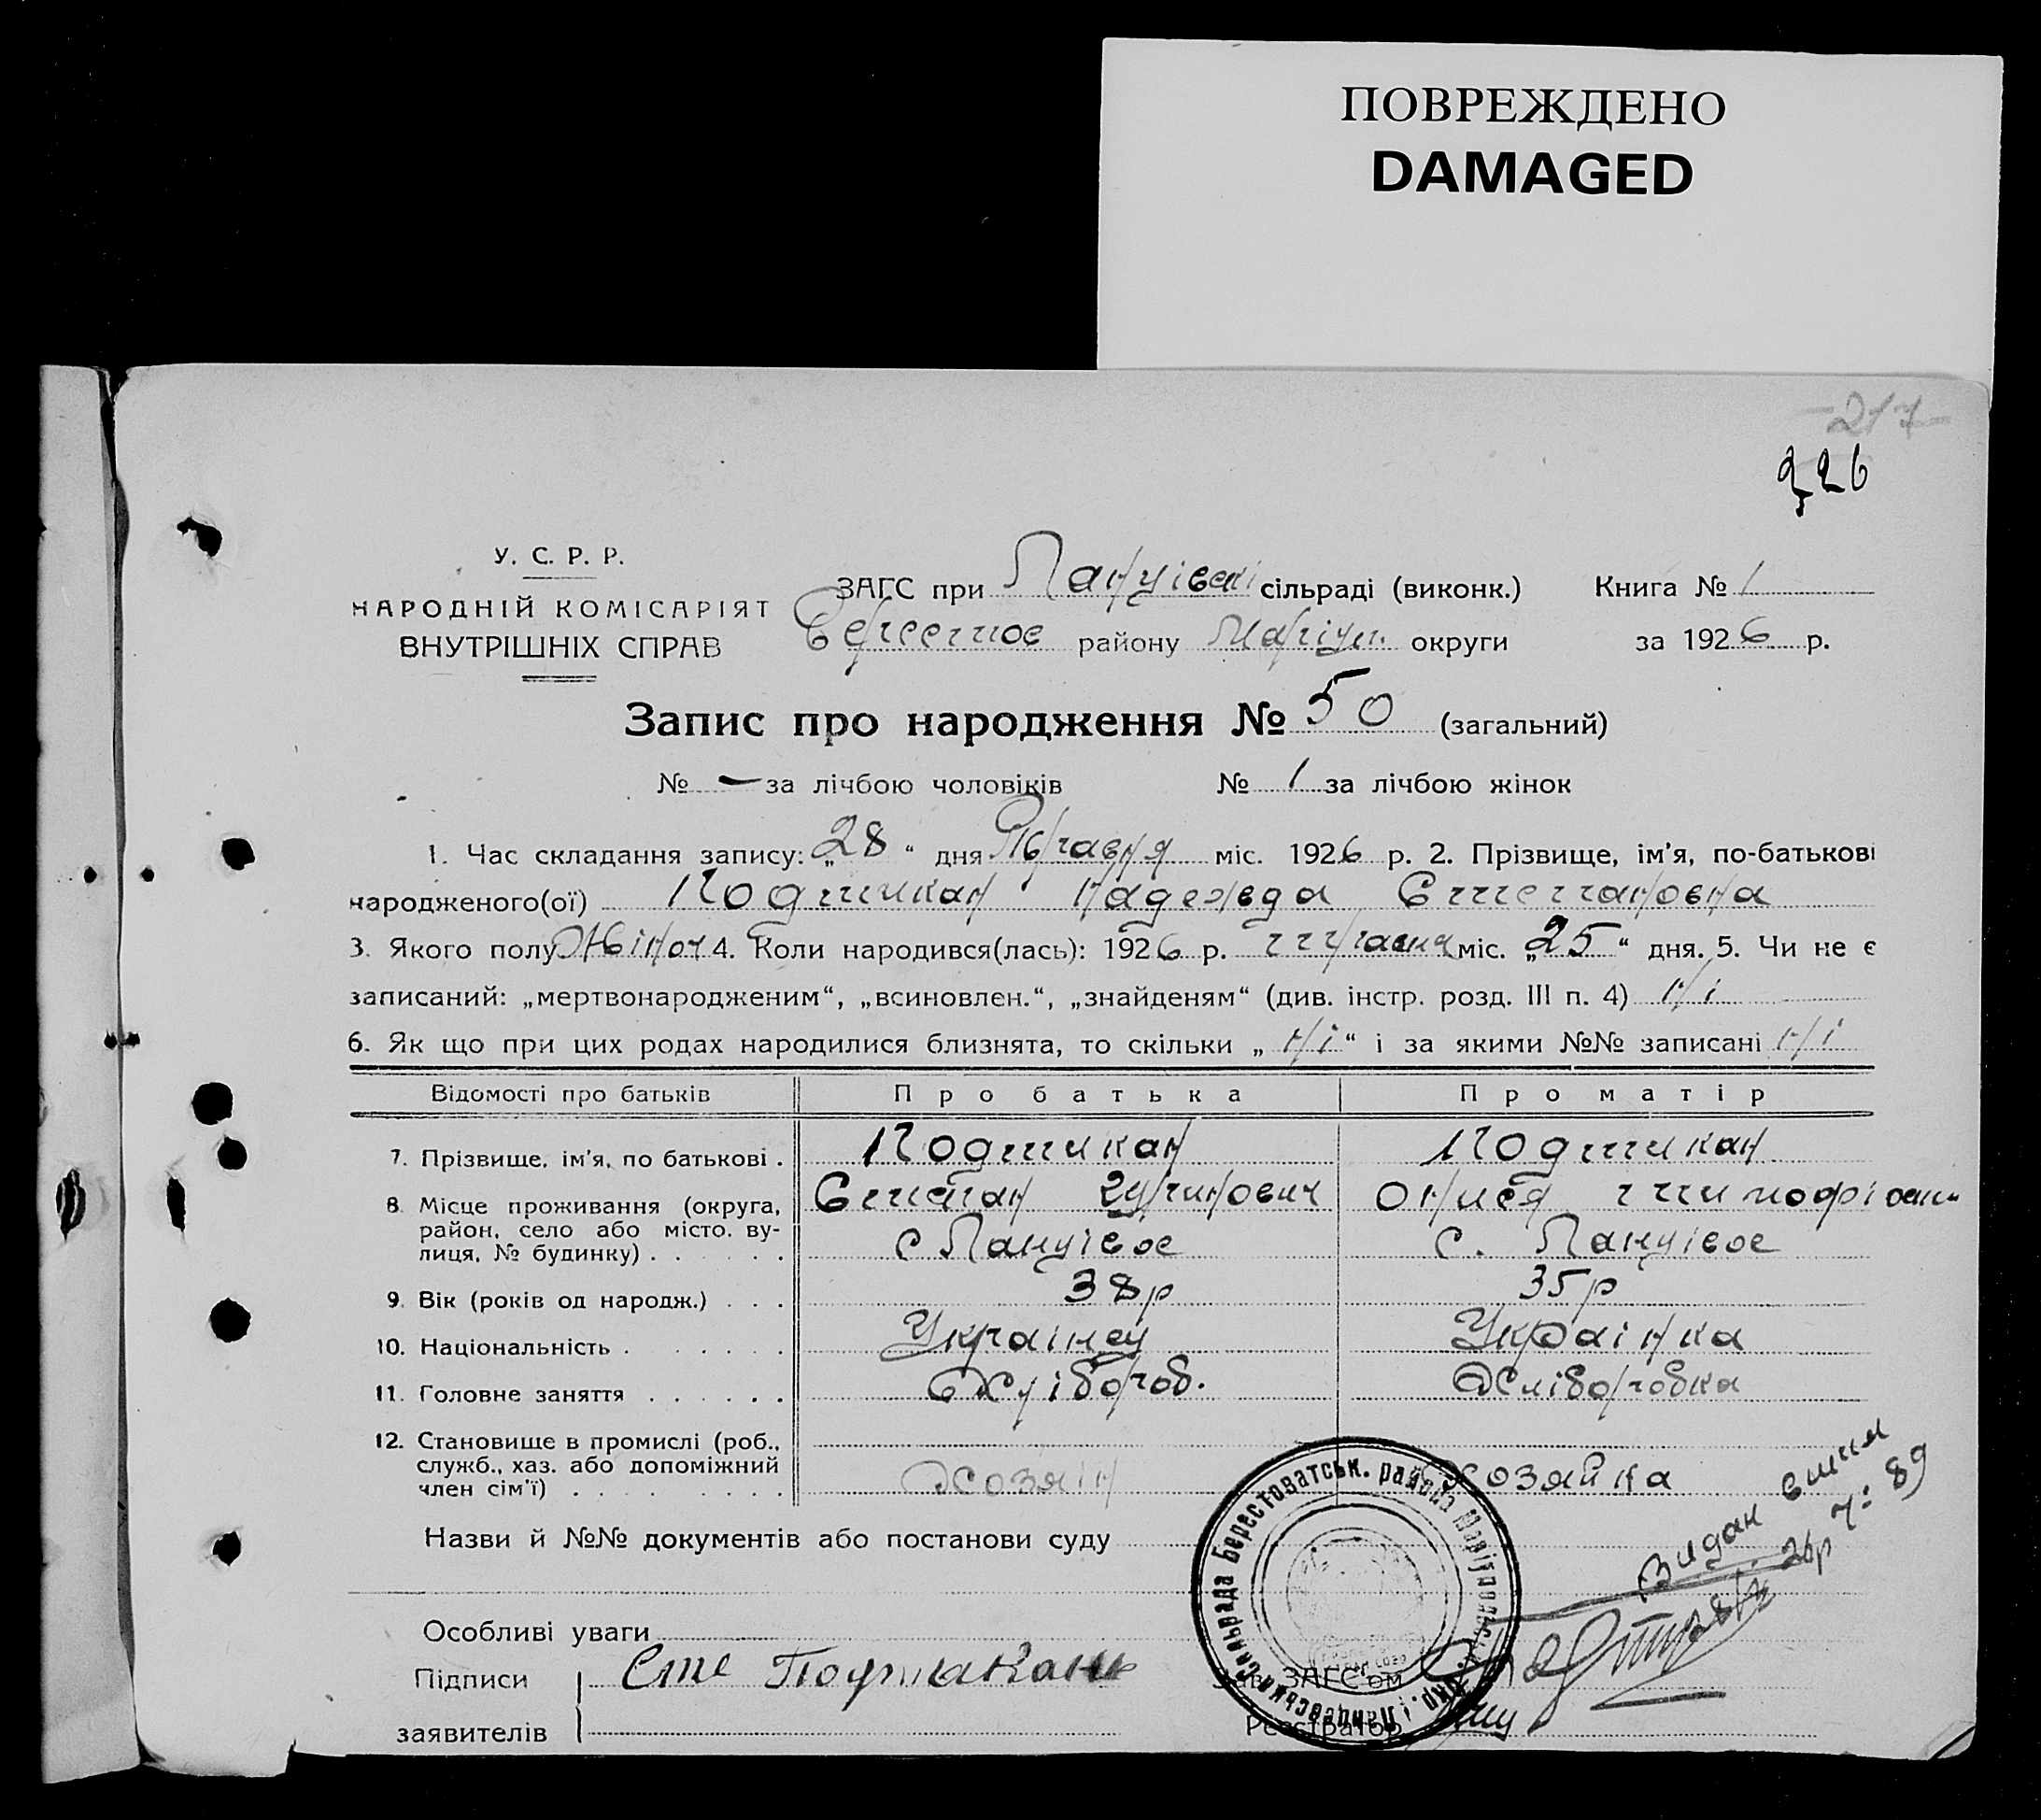 ПОВРЕЖДЕНО
DAMAGED
-217-
226
У. С. Р. Р.
НАРОДНІЙ КОМІСАРІЯТ
ВНУТРІШНІХ СПРАВ
ЗАГС при Ланцівскі сільраді (виконк.) Книга № 1
району Маріуп. округи за 1926 р.
Запис про народження № 50 (загальний)
№ — за лічбою чоловіків № 1 за лічбою жінок
1. Час складання запису: „28“ дня Травня міс. 1926 р. 2. Прізвище, ім'я, по-батькові
народженого(ої) Подтикан Надежда Степановна
3. Якого полу Жіноч 4. Коли народився(лась): 1926 р. травня міс. „25“ дня. 5. Чи не є
записаний: „мертвонародженим“, „всиновлен.“, „знайденям“ (див. інстр. розд. III п. 4) ні
6. Як що при цих родах народилися близнята, то скільки „ні“ і за якими №№ записані ні
Відомості про батьків Про батька Про матір
7. Прізвище, ім'я, по батькові . Подтикан Подтикан
8. Місце проживання (округа, Степан Онися
район, село або місто. ву-
лиця, № будинку) . . . . . с Ланцівое с. Ланцівое
9. Вік (років од народж.) . . . 38р 35р
10. Національність . . . . . . Украінец Украінка
11. Головне заняття . . . . . . Хлібороб. Хліборобка
12. Становище в промислі (роб.,
служб., хаз. або допоміжний
член сім'ї) . . . . . . . . . Хозяін Хозяйка
Видан
7: 89
Назви й №№ документів або постанови суду
Особливі уваги
Підписи Сте Подтыкань Зав. ЗАГС'ом
заявителів Реєстратор
сільрада Берестоватськ. района Маріупольськ. Окр.